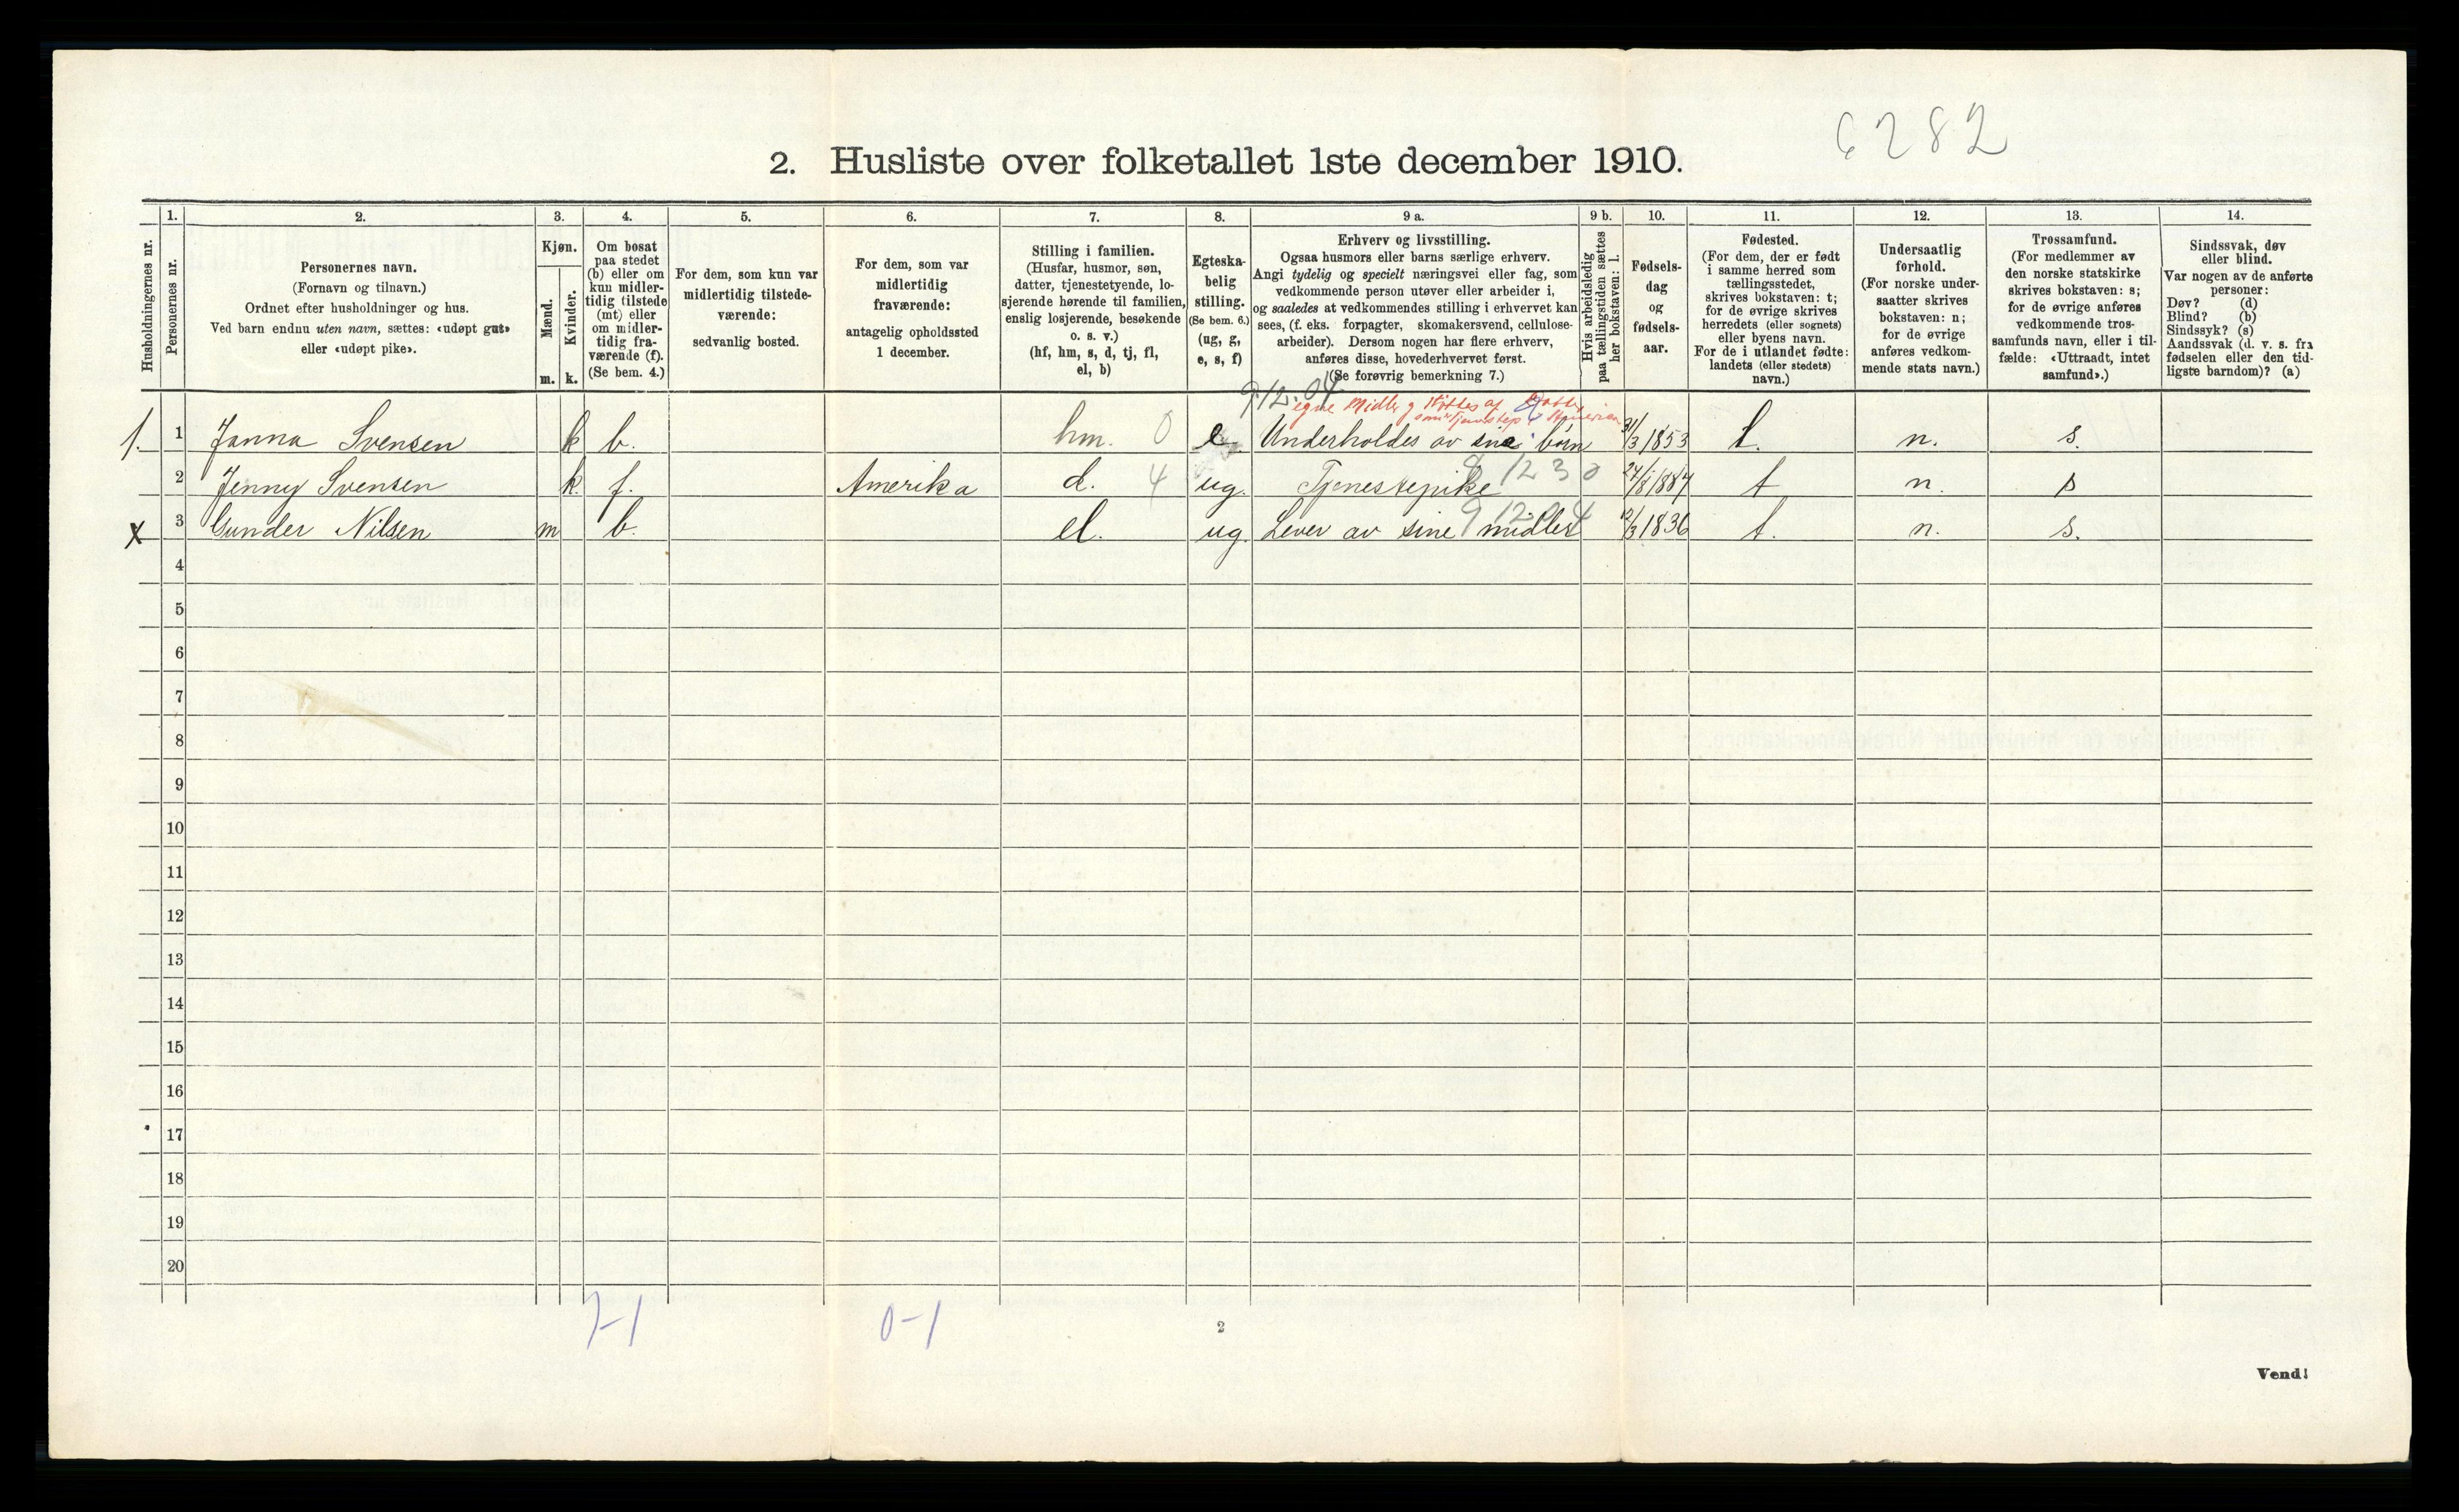 6282
2. Husliste over folketallet 1ste december 1910.
Husholdningernes nr.
1.
Personernes nr.
2.
Personernes navn.
(Fornavn og tilnavn.)
Ordnet efter husholdninger og hus.
Ved barn endnu uten navn, sættes: «udøpt gut»
eller «udøpt pike».
3.
Kjøn.
Mænd.
Kvinder.
m. k.
4.
Om bosat
paa stedet
(b) eller om
kun midler-
tidig tilstede
(mt) eller
om midler-
tidig fra-
værende (f).
(Se bem. 4.)
5.
For dem, som kun var
midlertidig tilstede-
værende:
sedvanlig bosted.
6.
For dem, som var
midlertidig
fraværende:
antagelig opholdssted
1 december.
7.
Stilling i familien.
(Husfar, husmor, søn,
datter, tjenestetyende, lo-
sjerende hørende til familien,
enslig losjerende, besøkende
o. s. v.)
(hf, hm, s, d, tj, fl,
el, b)
8.
Egteska-
belig
stilling.
(Se bem. 6.)
(ug, g,
e, s, f)
9 a.
Erhverv og livsstilling.
Ogsaa husmors eller barns særlige erhverv.
Angi tydelig og specielt næringsvei eller fag, som
vedkommende person utøver eller arbeider i,
og saaledes at vedkommendes stilling i erhvervet kan
sees, (f. eks. forpagter, skomakersvend, cellulose-
arbeider). Dersom nogen har flere erhverv,
anføres disse, hovederhvervet først.
(Se forøvrig bemerkning 7.)
9 b.
Hvis arbeidsledig
paa tællingstiden sættes
her bokstaven: l.
10.
Fødsels-
dag
og
fødsels-
aar.
11.
Fødested.
(For dem, der er født
i samme herred som
tællingsstedet,
skrives bokstaven: t;
for de øvrige skrives
herredets (eller sognets)
eller byens navn.
For de i utlandet fødte:
landets (eller stedets)
navn.)
12.
Undersaatlig
forhold.
(For norske under-
saatter skrives
bokstaven: n;
for de øvrige
anføres vedkom-
mende stats navn.)
13.
Trossamfund.
(For medlemmer av
den norske statskirke
skrives bokstaven: s;
for de øvrige anføres
vedkommende tros-
samfunds navn, eller i til-
fælde: «Uttraadt, intet
samfund».)
14.
Sindssvak, døv
eller blind.
Var nogen av de anførte
personer:
Døv? (d)
Blind? (b)
Sindssyk? (s)
Aandssvak (d. v. s. fra
fødselen eller den tid-
ligste barndom)? (a)
9.12.04
egne Midler
1. 1 Janna Svensen k b. hm. 0 e. Underholdes av sine børn 31/3 1853 t. n. s.
2 Jenny Svensen k. f. Amerika d. 4 ug. Tjenestepike 24/8 1887 t n. s
x 3 Gunder Nilsen m b. el. ug. Lever av sine midler 12/3 1836 t. n. s.
4
5
6
7
8
9
10
11
12
13
14
15
16
17
18
19
20
0-1
2
Vend!